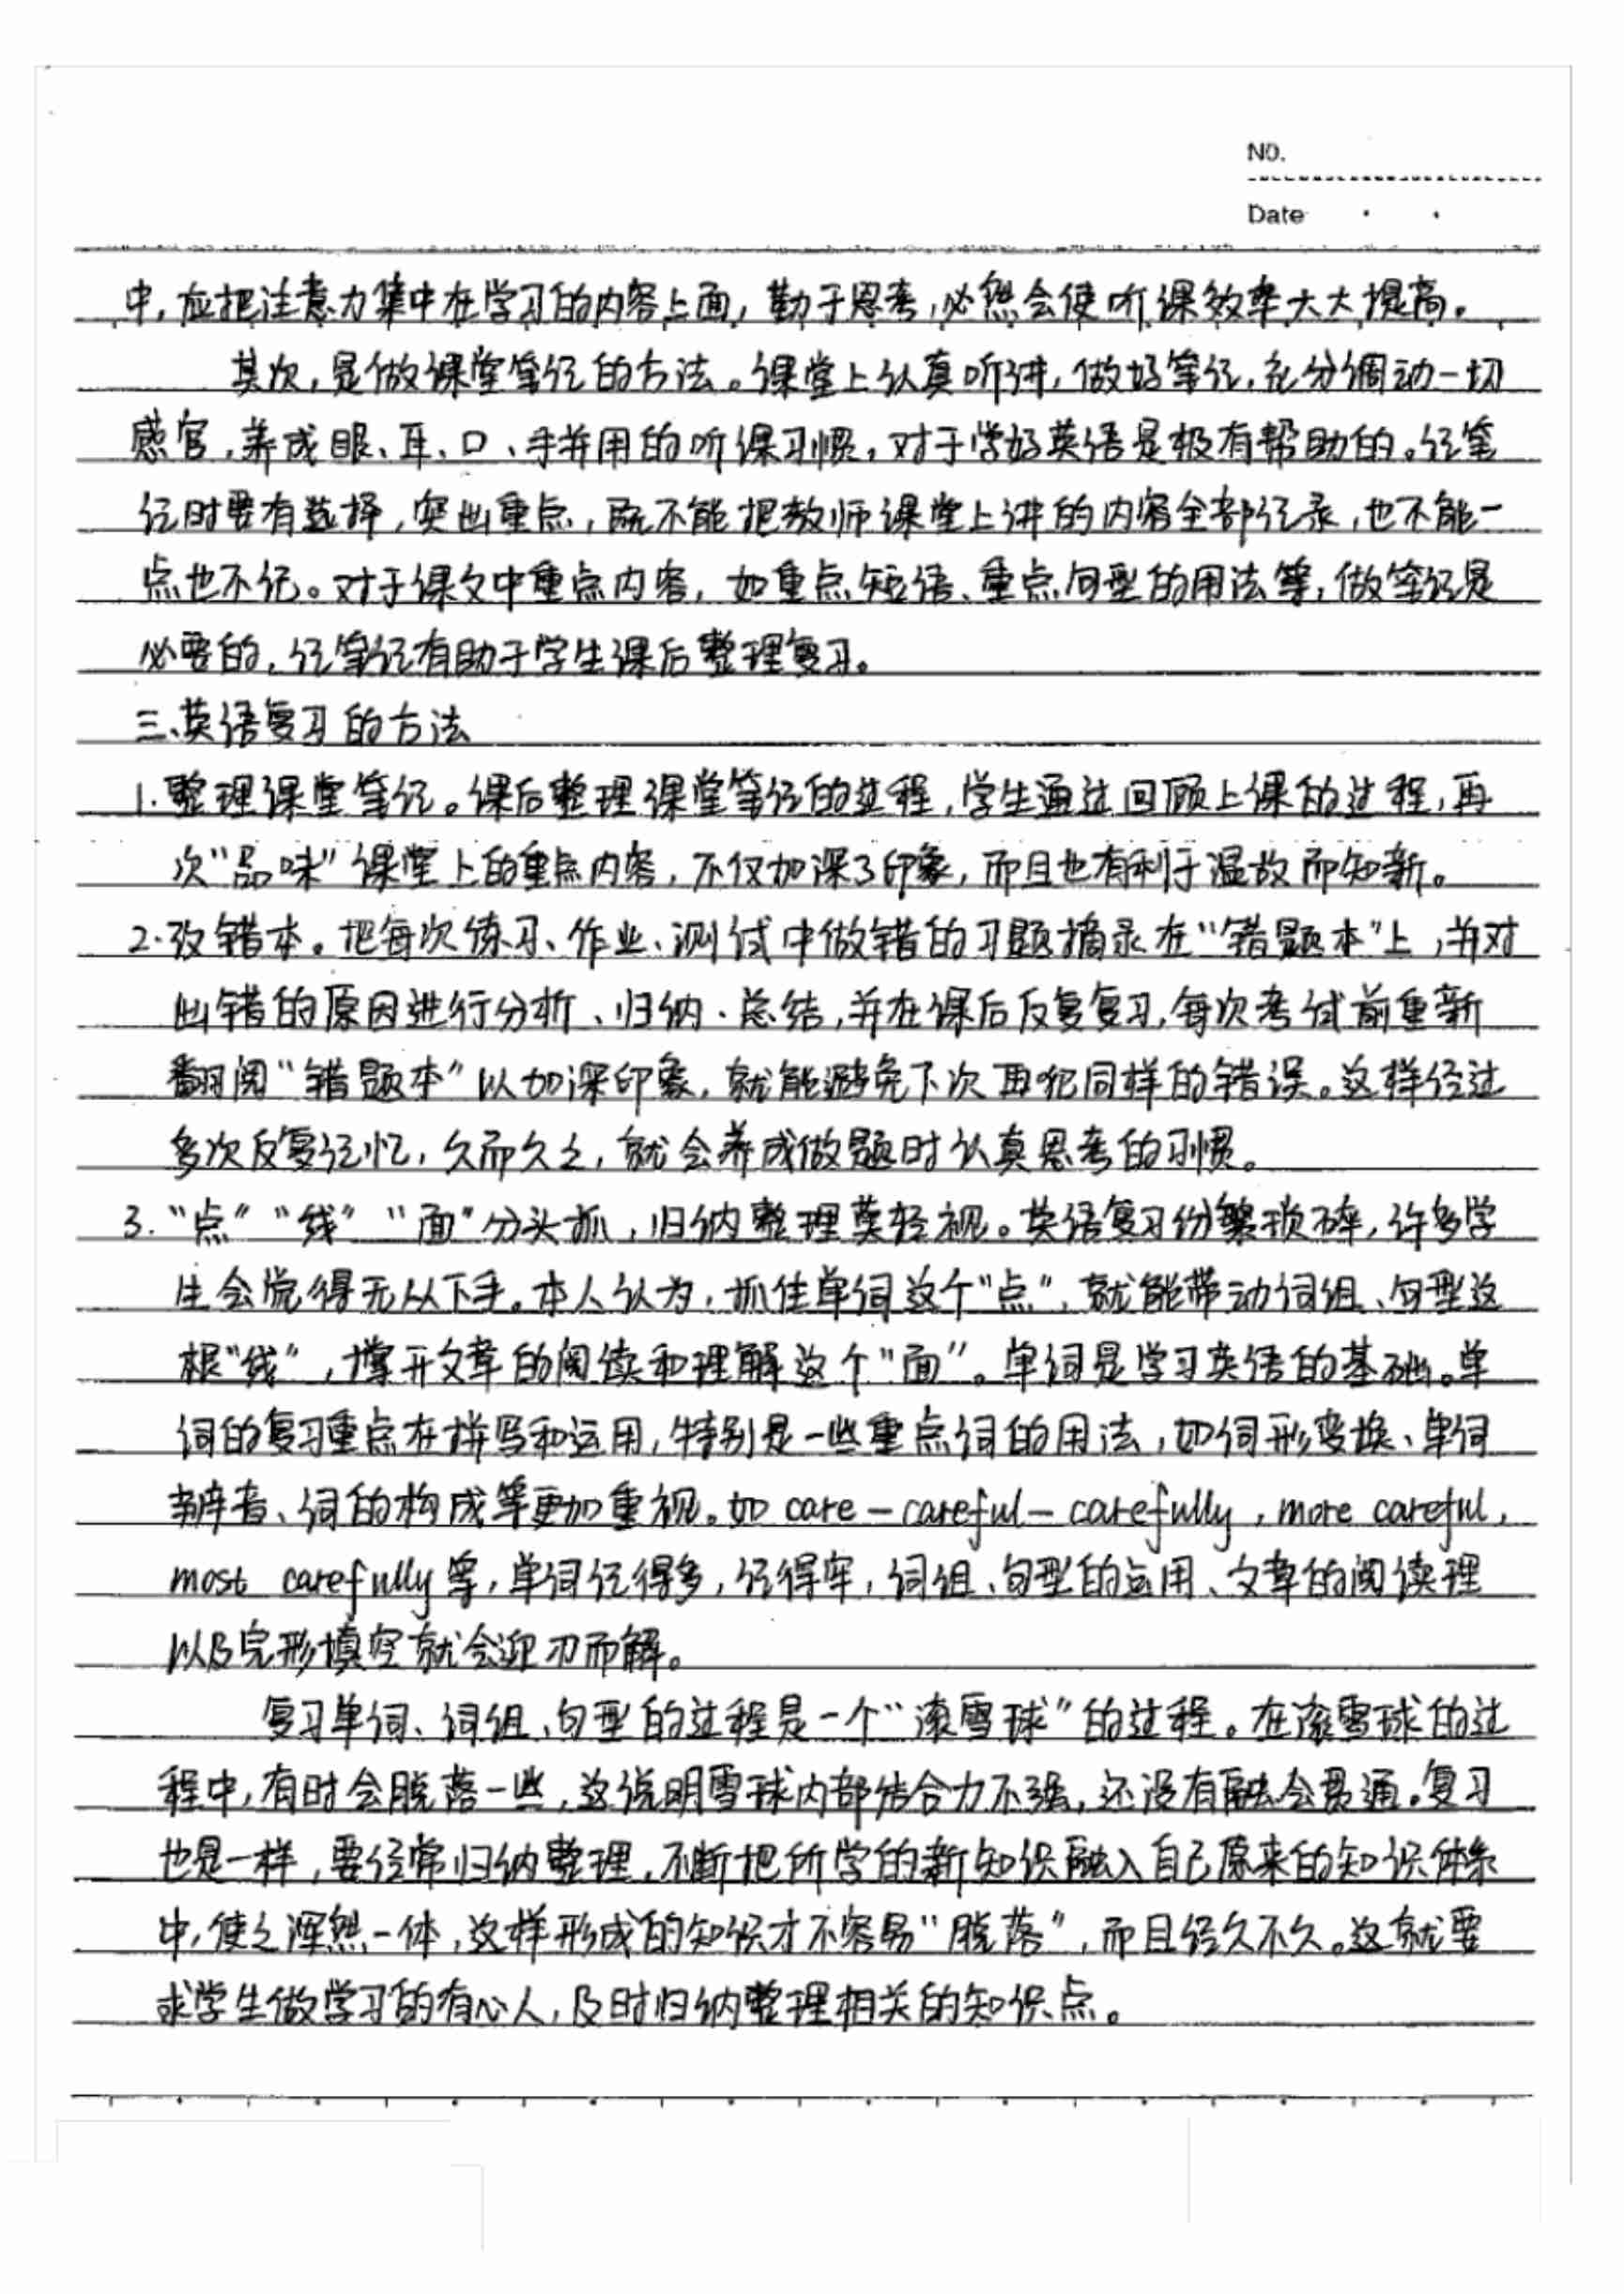 NO.
Date
中,应把注意力集中在学习的内容上面,勤于思考,必然会使听课效率大大提高。
其次,是做课堂笔记的方法。课堂上认真听讲,做好笔记,充分调动一切
感官,养成眼、耳、口、手并用的听课习惯,对于学好英语是极有帮助的。记笔
记时要有选择,突出重点,既不能把教师课堂上讲的内容全部记录,也不能一
点也不记。对于课文中重点内容,如重点短语、重点句型的用法等,做笔记是
必要的,记笔记有助于学生课后整理复习。
三、英语复习的方法
1.整理课堂笔记。课后整理课堂笔记的过程,学生通过回顾上课的过程,再
次“品味”课堂上的重点内容,不仅加深了印象,而且也有利于温故而知新。
2.改错本。把每次练习、作业、测试中做错的习题摘录在“错题本”上,并对
出错的原因进行分析、归纳、总结,并在课后反复复习,每次考试前重新
翻阅“错题本”以加深印象,就能避免下次再犯同样的错误。这样经过
多次反复记忆,久而久之,就会养成做题时认真思考的习惯。
3.“点”“线”“面”分头抓,归纳整理莫轻视。英语复习份繁琐碎,许多学
生会觉得无从下手。本人认为,抓住单词这个“点”,就能带动词组、句型这
根“线”,撑开文章的阅读和理解这个“面”。单词是学习英语的基础。单
词的复习重点在拼写和运用,特别是一些重点词的用法,如词形变换、单词
辨音、词的构成等更加重视。如 care-careful-carefully,more careful,
most carefully等,单词记得多,记得牢,词组、句型的运用、文章的阅读理
以及完形填空就会迎刃而解。
复习单词、词组、句型的过程是一个“滚雪球”的过程。在滚雪球的过
程中,有时会脱落一些,这说明雪球内部结合力不强,还没有融会贯通。复习
也是一样,要经常归纳整理,不断把所学的新知识融入自己原来的知识体系
中,使之浑然一体,这样形成的知识才不容易“脱落”,而且经久不久。这就要
求学生做学习的有心人,及时归纳整理相关的知识点。